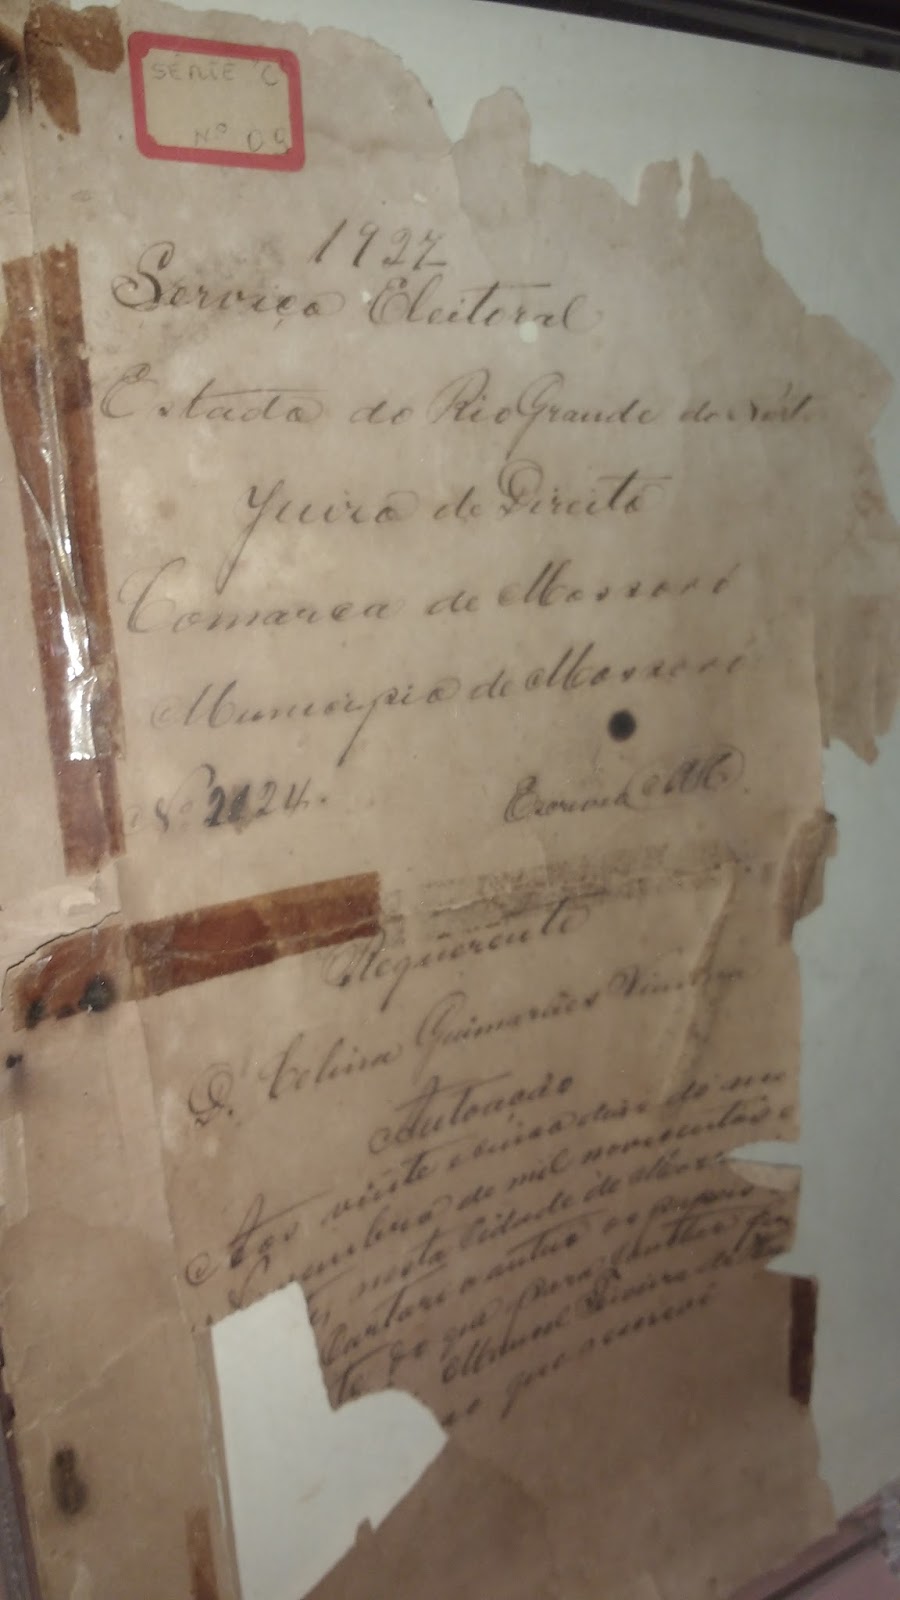 SÉRIE "C"
Nº 09
1927
Serviço Eleitoral
Estado do Rio Grande do Nort
Juizo de Direito
Comarca de Mossoró
Municipio de Mossoró
Nº 2124.
Escrivão
Requerente
D. Celina Guimarães Vianna
Autoação
Aos vinte e cinco dias do me
Novembro de mil novecentos e
nesta Cidade de Moss
Cartorio autuo os papeis
te do que para constar
Manoel
que escrevi